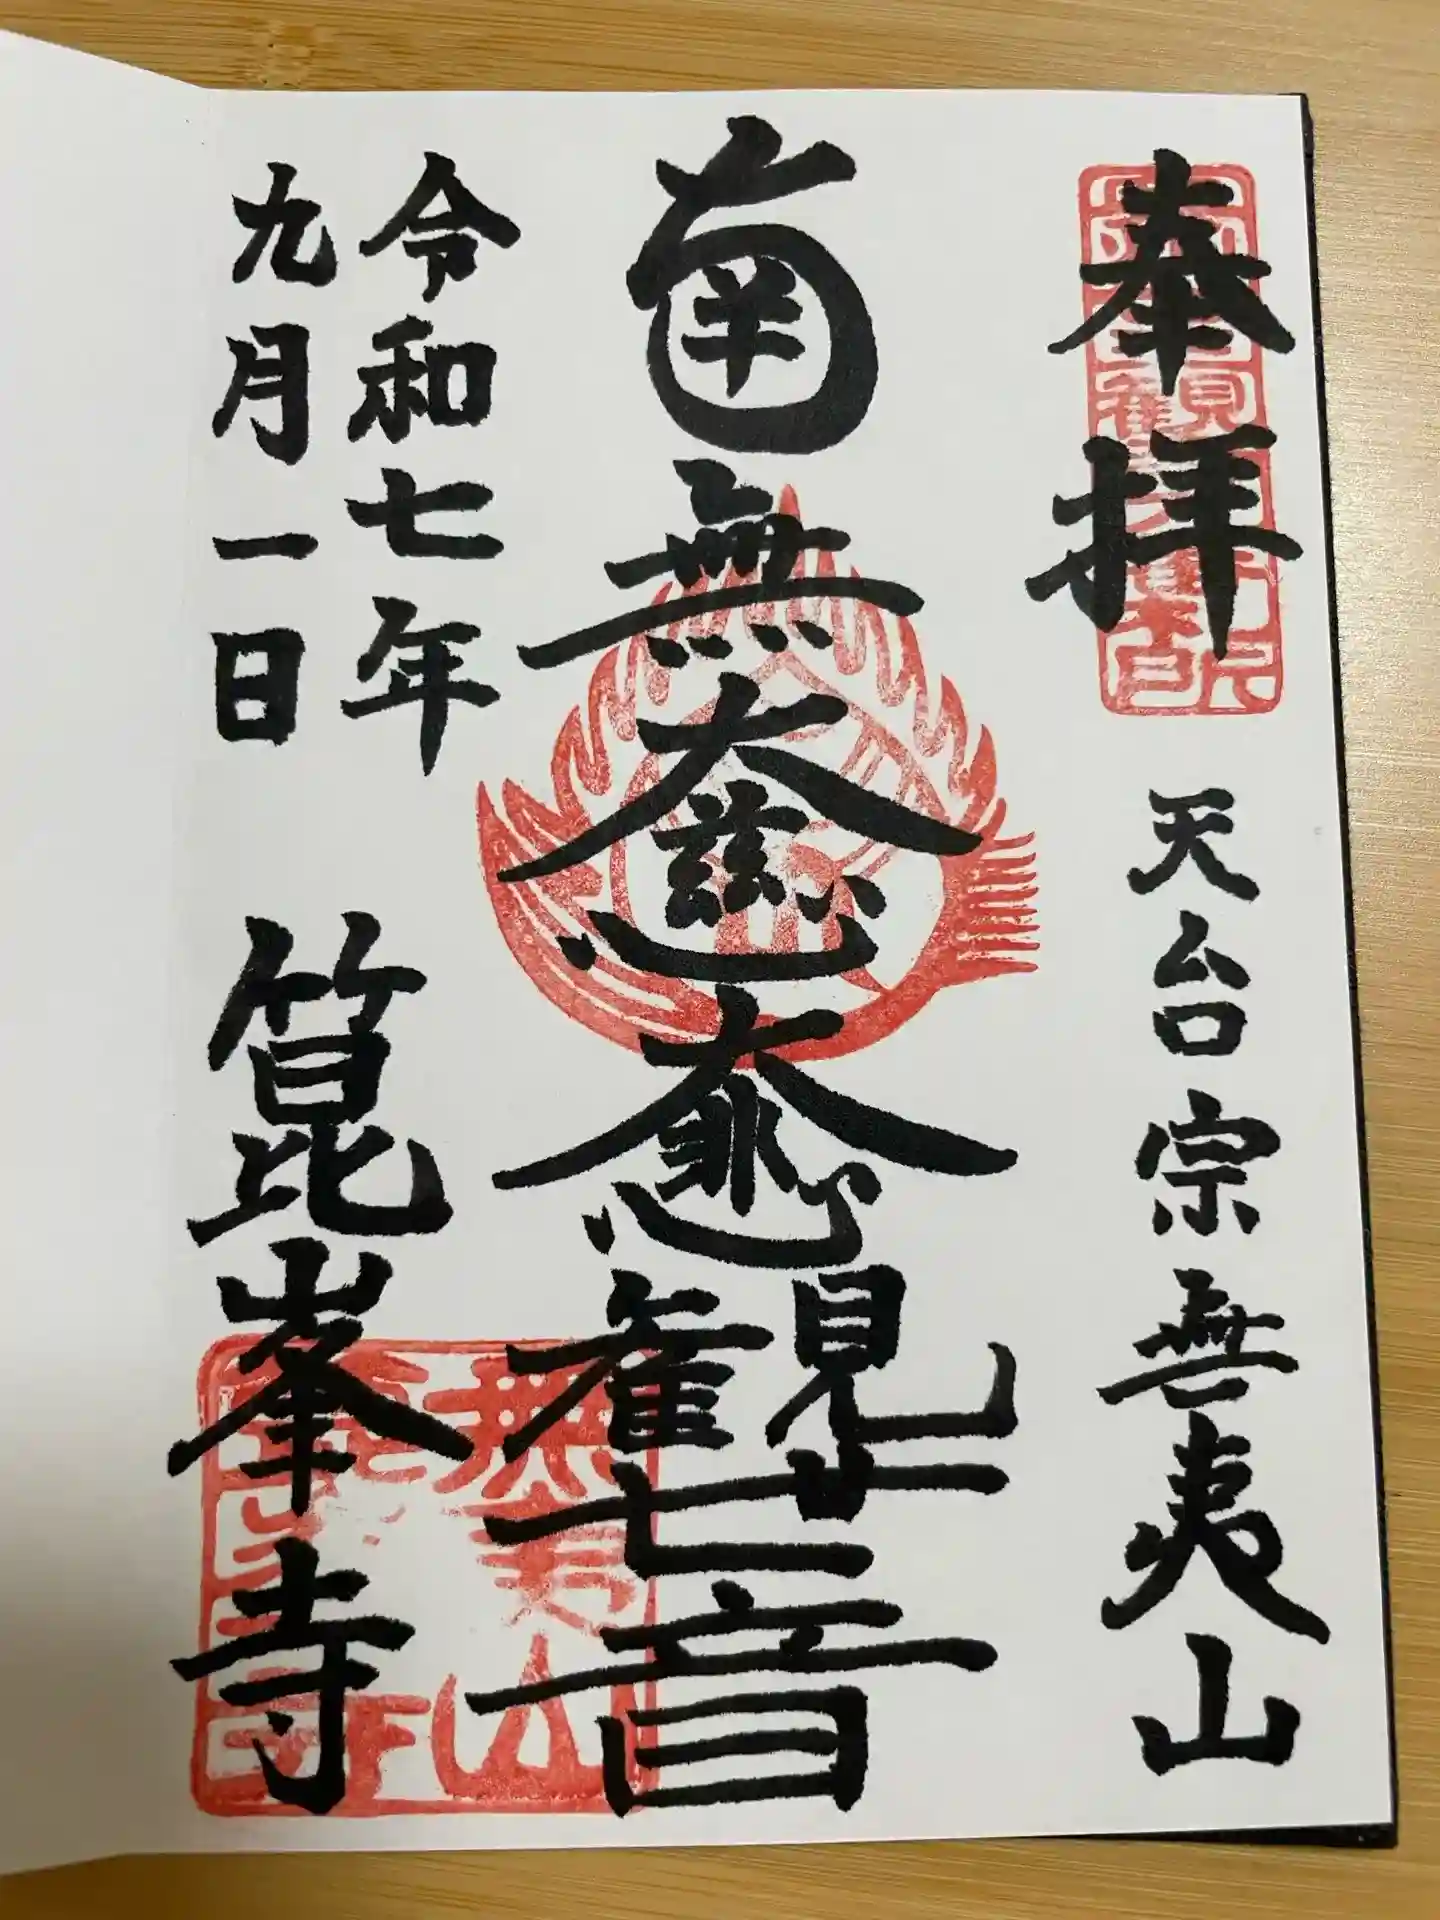 奉拝
天台宗無夷山
南無大慈大悲觀世音
令和七年
九月一日
箟峯寺
無夷山